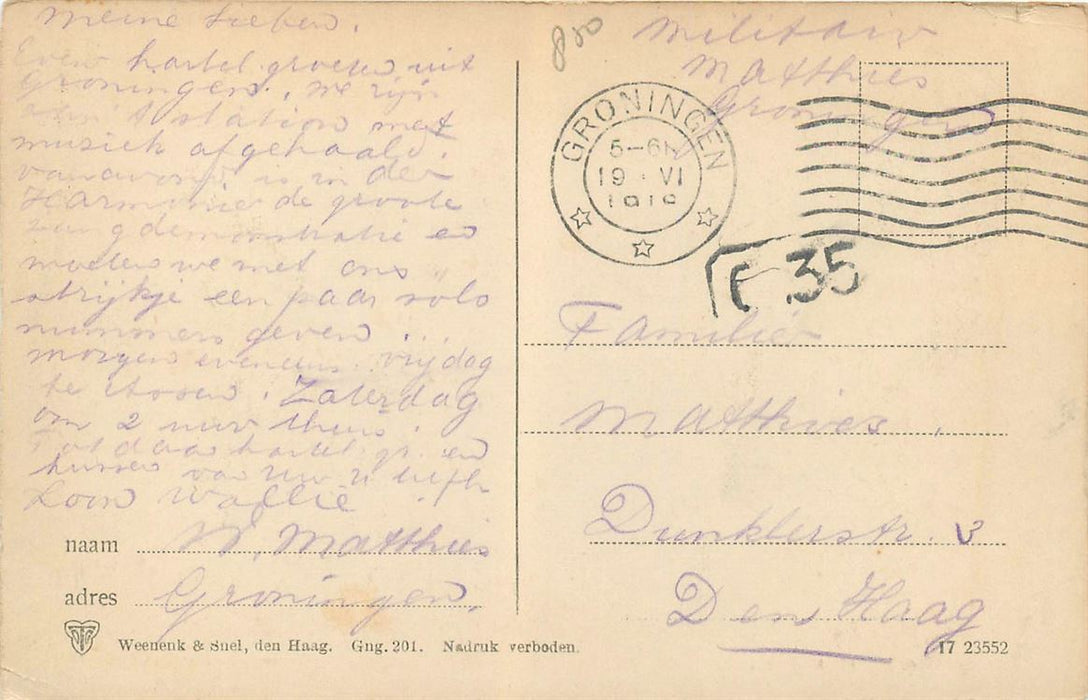 Meine Lieben.
Even hartel. groeten uit
Groningen, we zijn
station met
muziek afgehaald.
vanavond is in de
Harmonie de groote
zangdemonstratie en
moeten we met ons
strijkje een paar solo
nummers geven.
morgen eveneens. vrijdag
te Assen. Zaterdag
om 2 uur thuis.
Tot daar hartel. gr. en
kussen van uw u liefh
Zoon Wallie
naam W. Matthies
adres Groningen.
Weenenk & Snel, den Haag. Gng. 201. Nadruk verboden.
850
Militair
Matthies
Groningen
GRONINGEN
5-6N
19 VI
1919
F 35
Familie
Matthies.
Dunklerstr. 3
Den Haag
17 23552